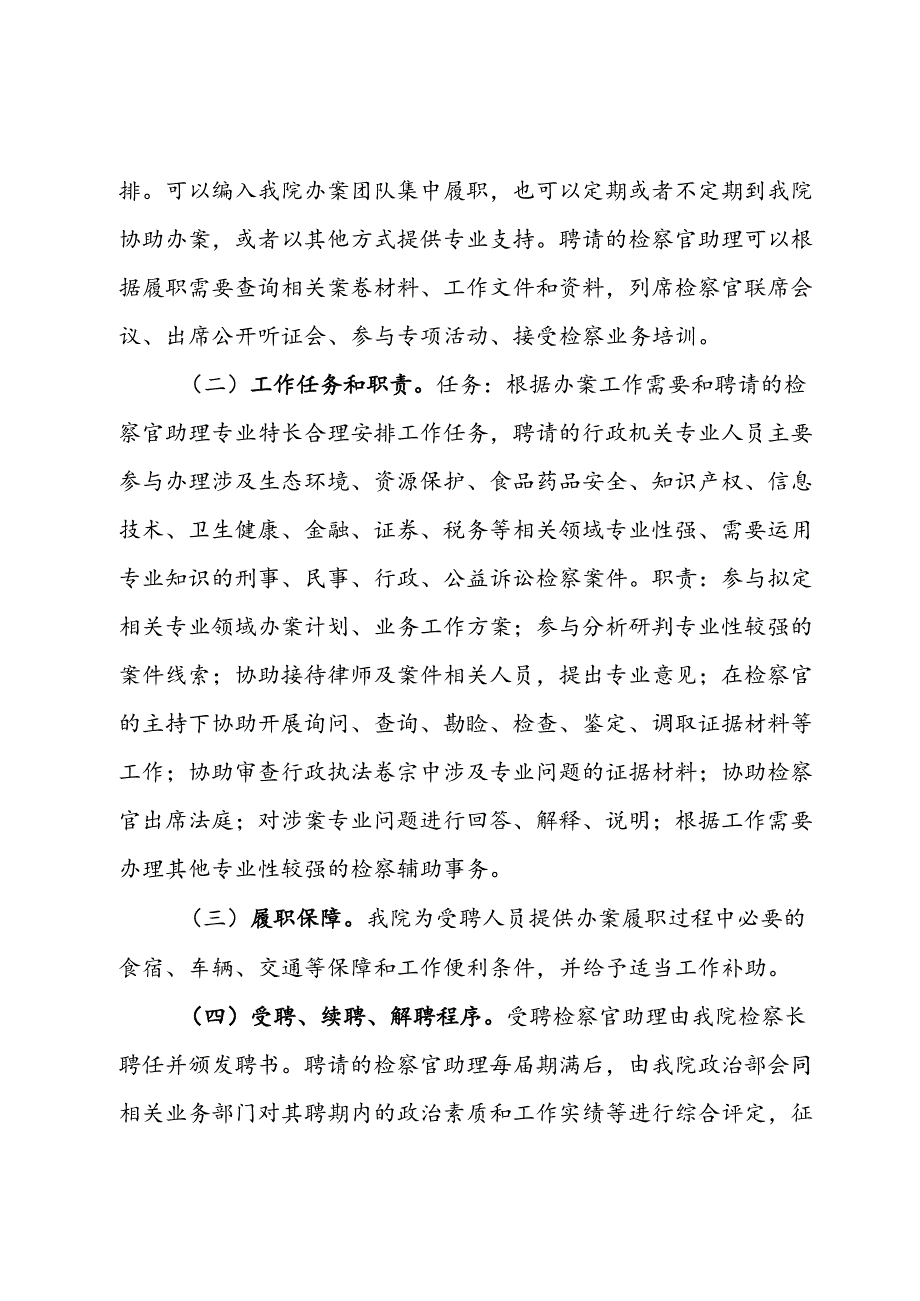 排。可以编入我院办案团队集中履职，也可以定期或者不定期到我院
协助办案，或者以其他方式提供专业支持。聘请的检察官助理可以根
据履职需要查询相关案卷材料、工作文件和资料，列席检察官联席会
议、出席公开听证会、参与专项活动、接受检察业务培训。
（二）工作任务和职责。任务：根据办案工作需要和聘请的检
察官助理专业特长合理安排工作任务，聘请的行政机关专业人员主要
参与办理涉及生态环境、资源保护、食品药品安全、知识产权、信息
技术、卫生健康、金融、证券、税务等相关领域专业性强、需要运用
专业知识的刑事、民事、行政、公益诉讼检察案件。职责：参与拟定
相关专业领域办案计划、业务工作方案；参与分析研判专业性较强的
案件线索；协助接待律师及案件相关人员，提出专业意见；在检察官
的主持下协助开展询问、查询、勘睑、检查、鉴定、调取证据材料等
工作；协助审查行政执法卷宗中涉及专业问题的证据材料；协助检察
官出席法庭；对涉案专业问题进行回答、解释、说明；根据工作需要
办理其他专业性较强的检察辅助事务。
（三）履职保障。我院为受聘人员提供办案履职过程中必要的
食宿、车辆、交通等保障和工作便利条件，并给予适当工作补助。
（四）受聘、续聘、解聘程序。受聘检察官助理由我院检察长
聘任并颁发聘书。聘请的检察官助理每届期满后，由我院政治部会同
相关业务部门对其聘期内的政治素质和工作实绩等进行综合评定，征